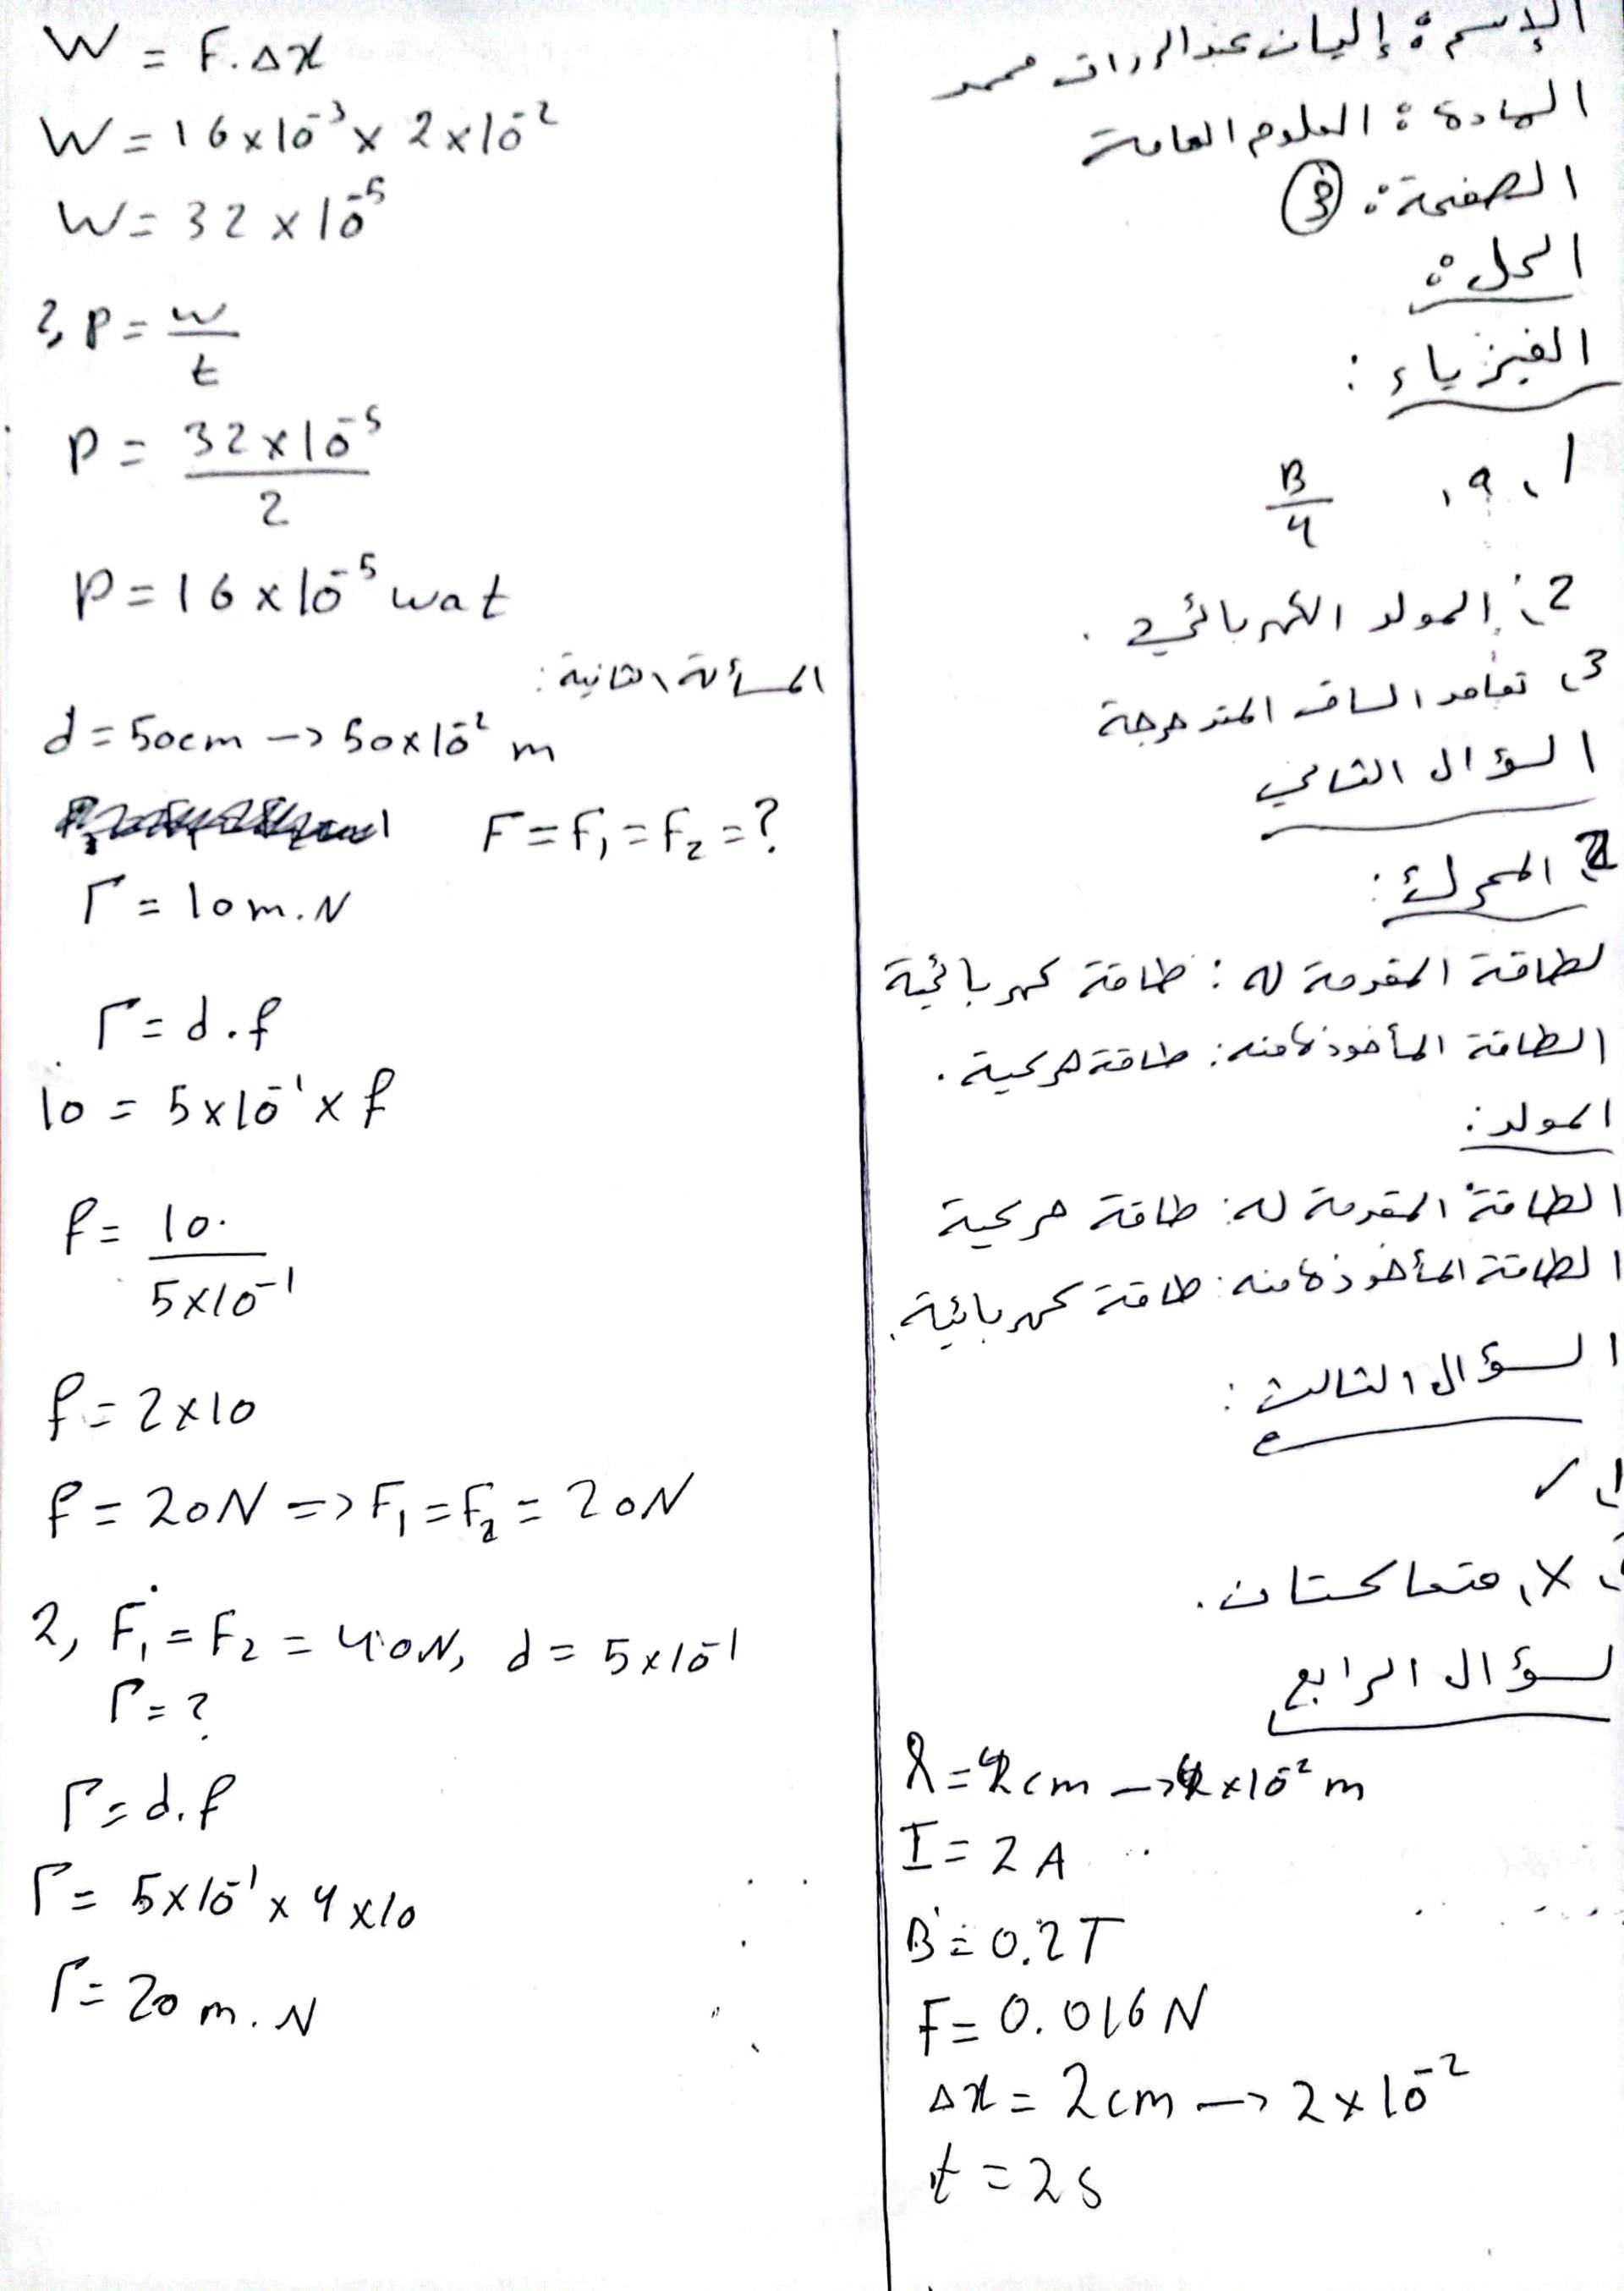 الإسم: إليان عبدالرزاق محمد
المادة: العلوم العامة
الصفحة: 3
الحل:
الفيزياء:
1، a، B/4
2، المولد الكهربائي.
3، تعامد الساق المتدحرجة
السؤال الثاني
2، المحرك:
لطاقة المقدمة له: طاقة كهربائية
الطاقة المأخوذة منه: طاقة حركية.
المولد:
الطاقة المقدمة له: طاقة حركية
الطاقة المأخوذة منه: طاقة كهربائية.
السؤال الثالث:
1، ✓
X، متعاكستان.
لسؤال الرابع
= 4cm → 4x10⁻² m
I = 2 A
B = 0.2 T
F = 0.016 N
Δx = 2cm → 2x10⁻²
t = 2s
W = F.Δx
W = 16x10⁻³ x 2x10⁻²
W = 32 x 10⁻⁵
2, P = W/t
P = 32x10⁻⁵/2
P = 16x10⁻⁵ wat
المسألة الثانية:
d = 50cm → 50x10⁻² m
F = F₁ = F₂ = ?
Γ = 10 m.N
Γ = d.f
10 = 5x10⁻¹ x f
f = 10/5x10⁻¹
f = 2x10
f = 20N => F₁ = F₂ = 20N
2, F₁ = F₂ = 40N, d = 5x10⁻¹
Γ = ?
Γ = d.f
Γ = 5x10⁻¹ x 4x10
Γ = 20 m.N